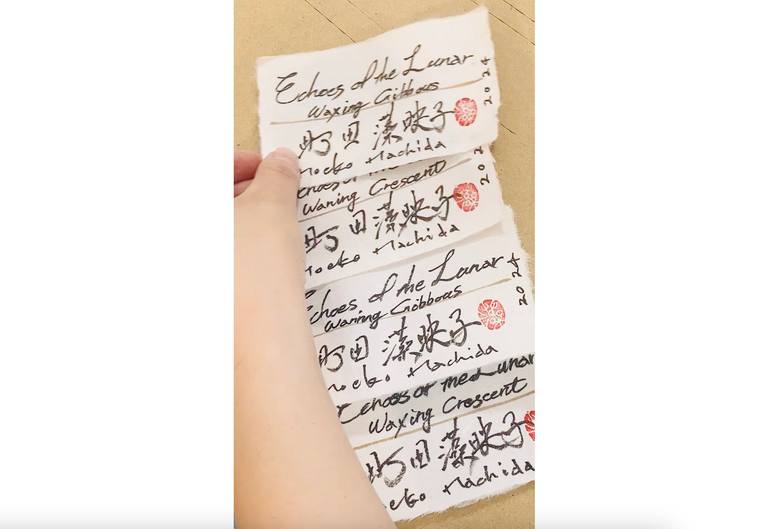 Echoes of the Lunar
Waxing Gibbous
町田 藻映子
Moeko Machida
2024
Echoes of the
Waning Crescent
町田 藻映子
Moeko Machida
202
Echoes of the Lunar
Waning Gibbous
町田 藻映子
Moeko Machida
2024
Echoes of the Lunar
Waxing Crescent
町田 藻映子
Moeko Machida